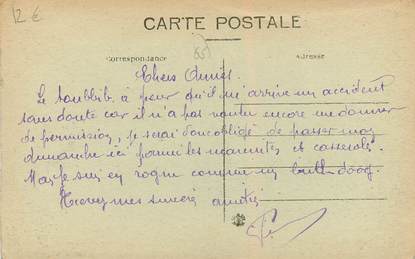 12 €
CARTE POSTALE
65
Correspondance
Adresse
Chers Amis.
Le toubbib à peur qu'il m'arrive un accident
sans doute car il n'a pas voulu encore me donner
de permission, je serai donc obligé de passer mon
dimanche ici parmi les marmites et casseroles.
Mais je suis en rogne comme un boull-doog.
Recevez mes sincères amitiés